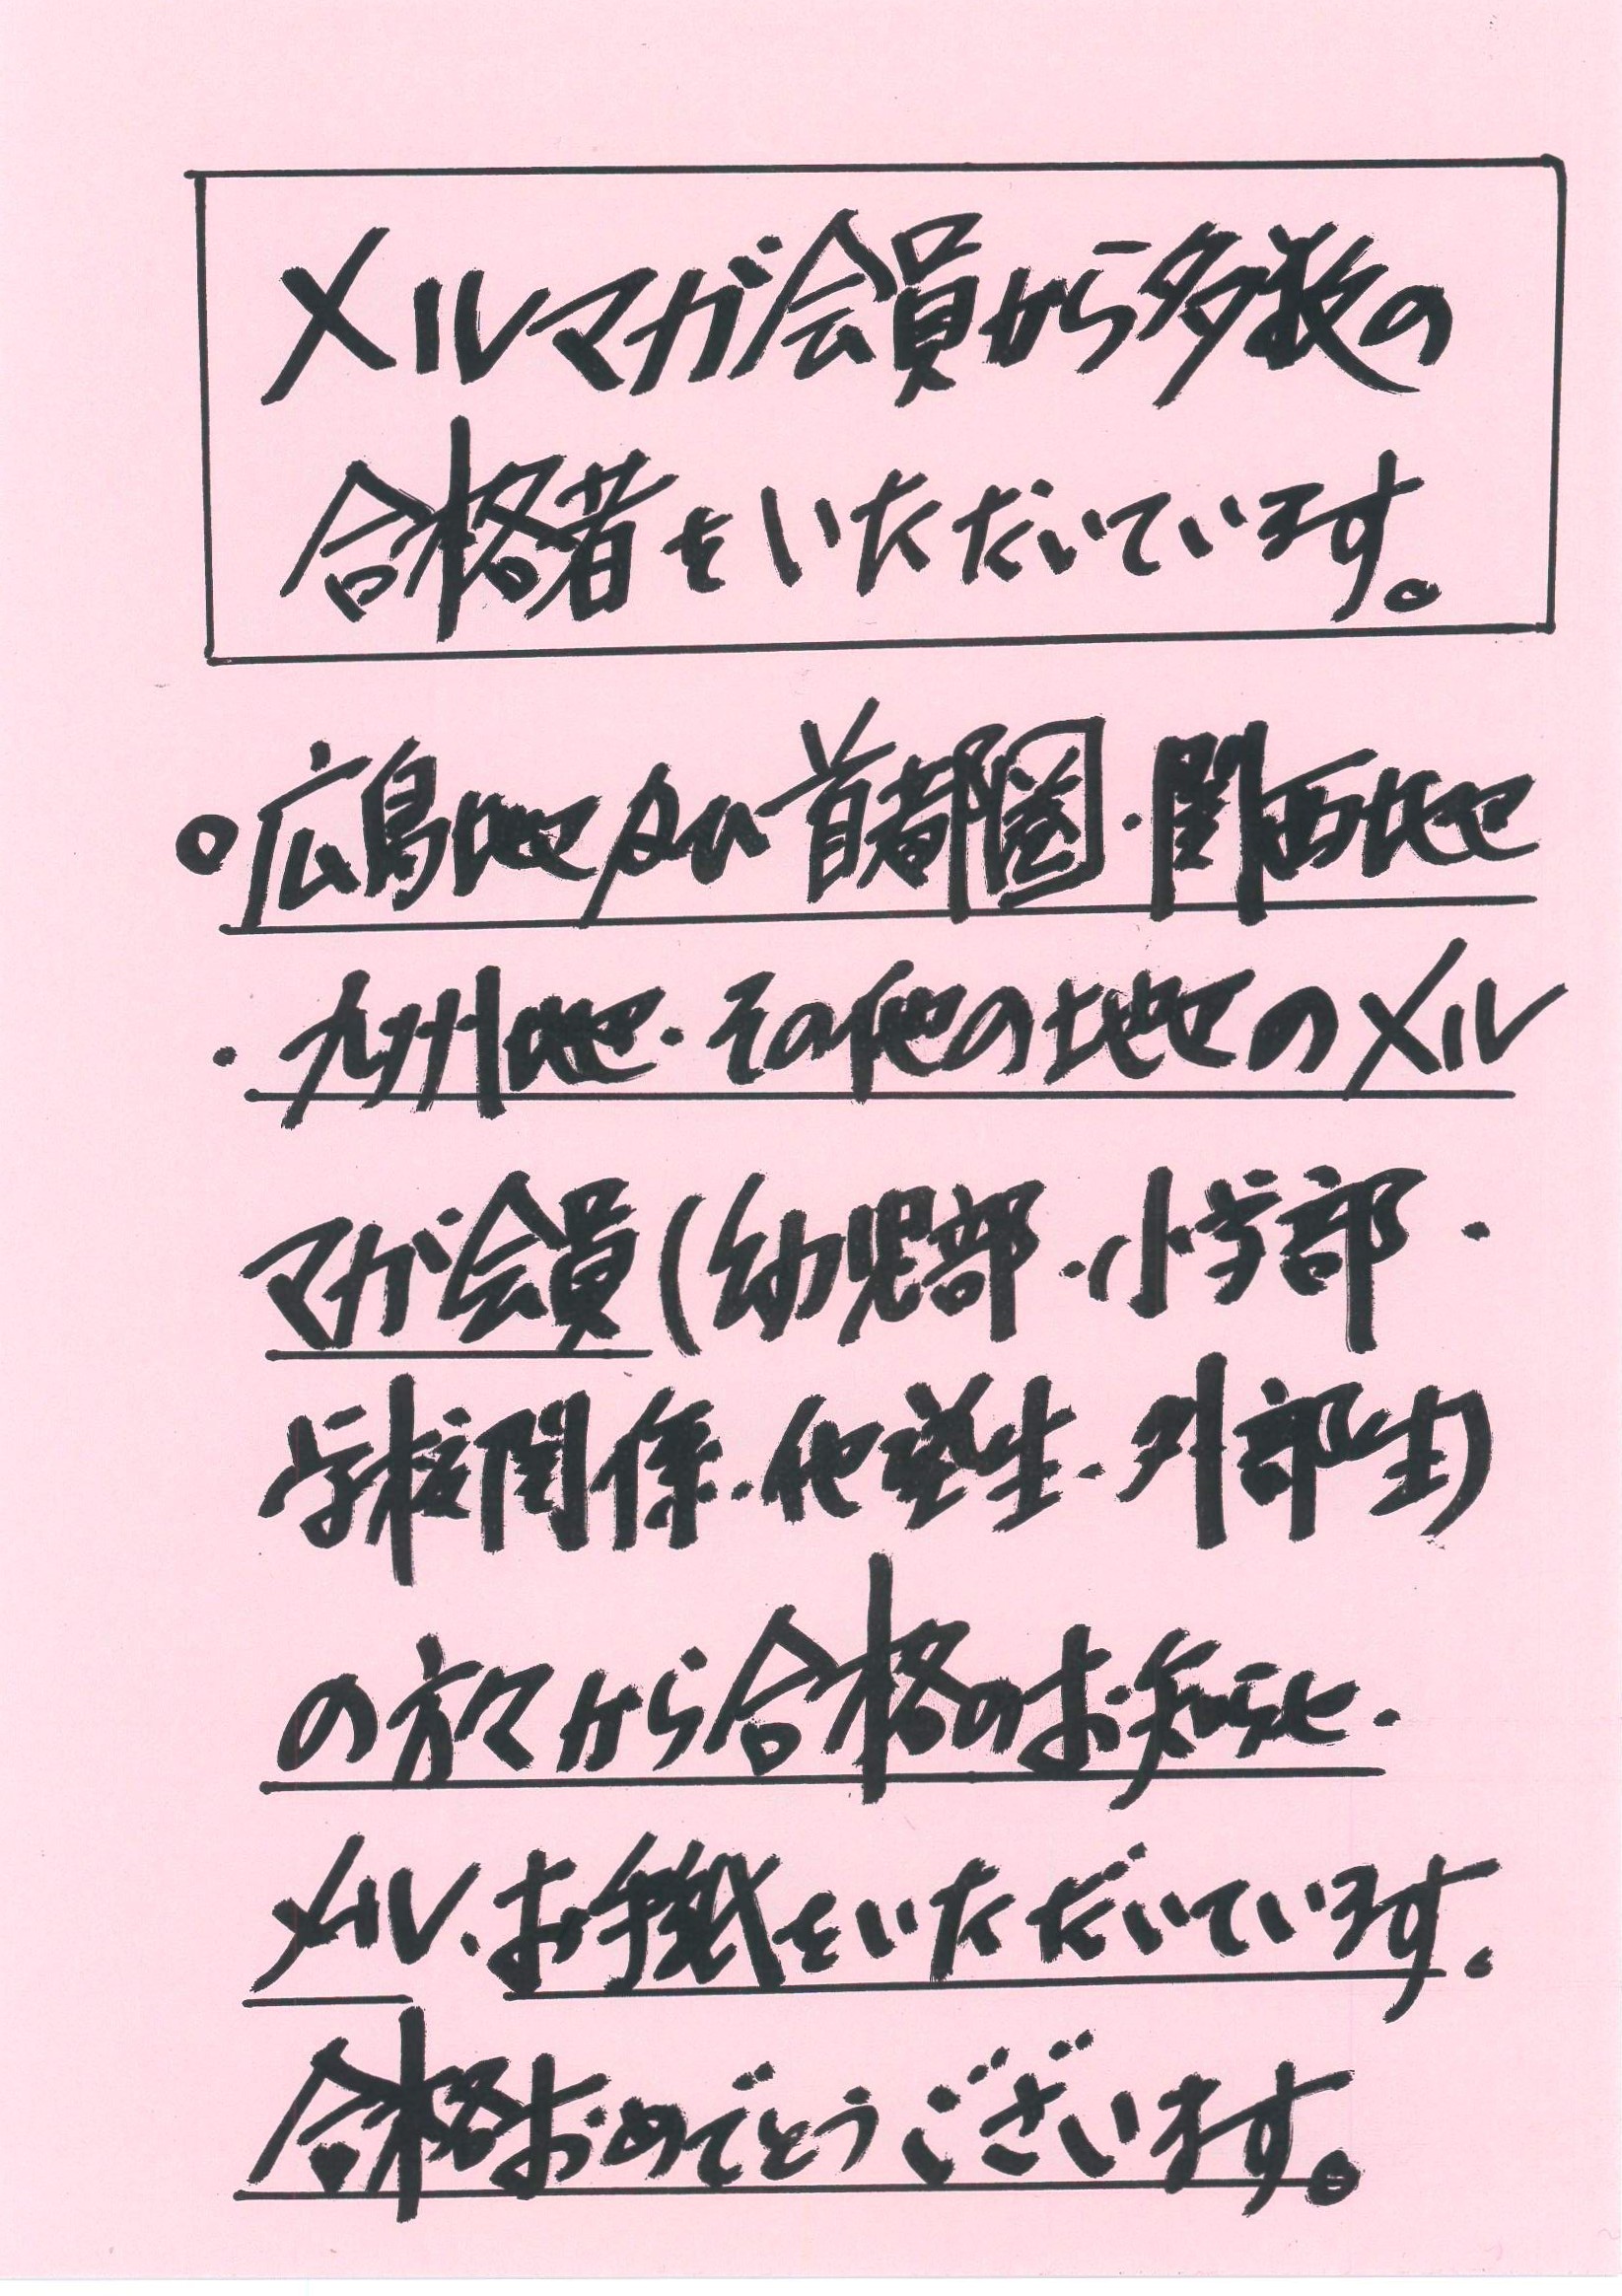 メルマガ会員から多数の
合格者をいただいています。
○広島地区及び首都圏・関西地区
・九州地区・その他の地区のメル
マガ会員(幼児部・小学部・
学校関係・他塾生・外部生)
の方々から合格のお知らせ・
メール・お手紙をいただいています。
合格おめでとうございます。